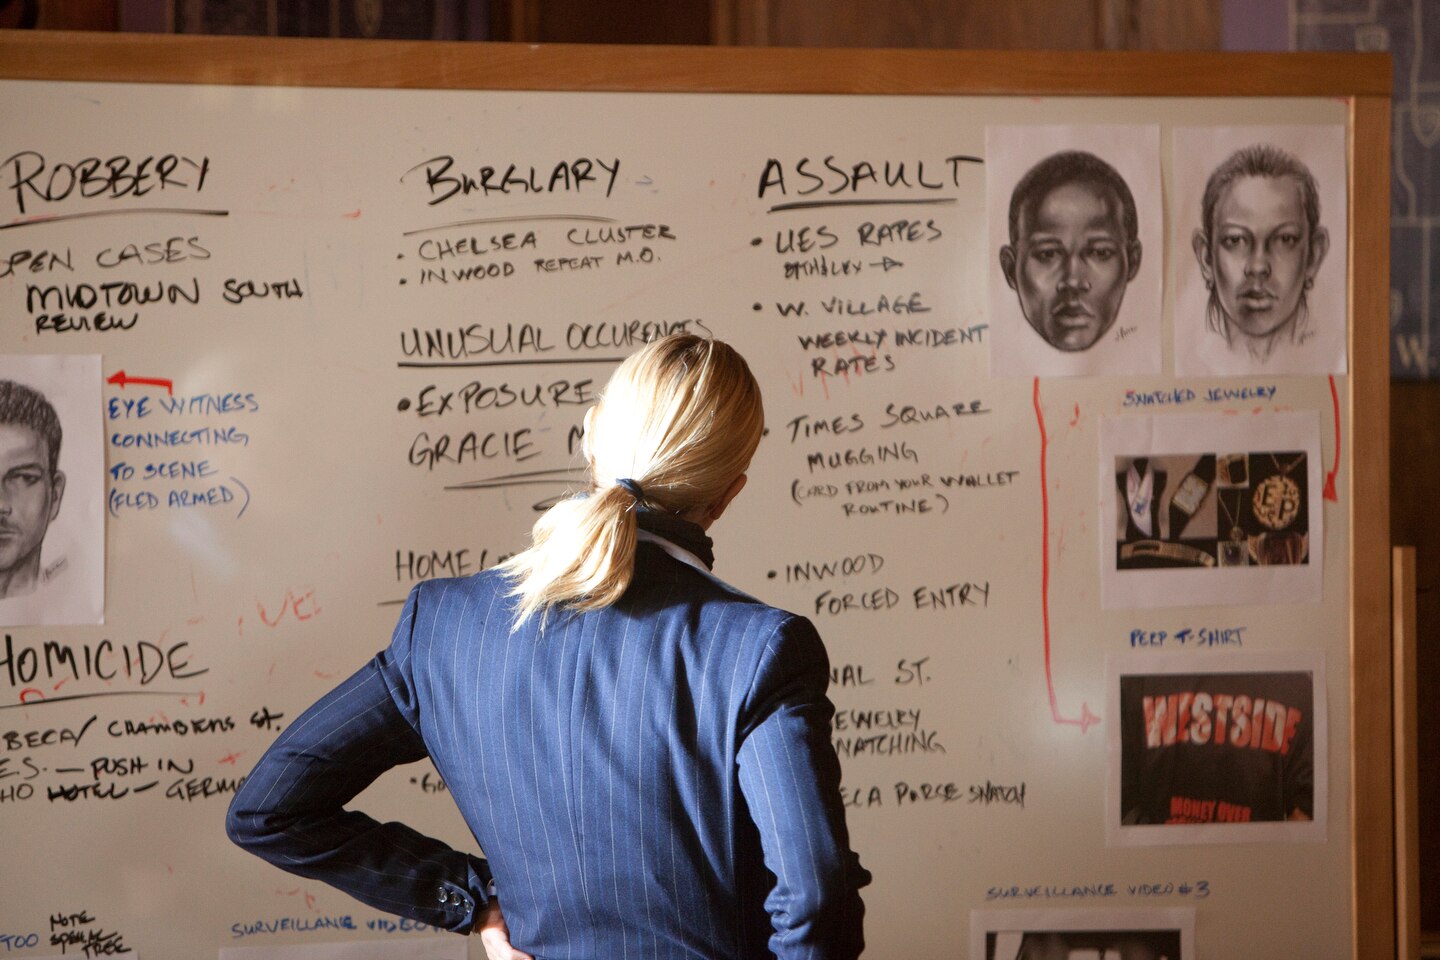 ROBBERY
OPEN CASES
MIDTOWN SOUTH
REVIEW
EYE WITNESS
CONNECTING
TO SCENE
(FLED ARMED)
HOMICIDE
BECA/ CHAMBERS St.
E.S. — PUSH IN
HO HOTEL — GERMA
TOO
NOTE
SURVEILLANCE VIDEO
BURGLARY
• CHELSEA CLUSTER
• INWOOD REPEAT M.O.
UNUSUAL OCCURENCES
• EXPOSURE
GRACIE M
HOME
ASSAULT
• UES RAPES
• W. VILLAGE
WEEKLY INCIDENT
RATES
TIMES SQUARE
MUGGING
(CARD FROM YOUR WALLET
ROUTINE)
• INWOOD
FORCED ENTRY
NAL ST.
EWELRY
NATCHING
ECA PURSE SNATCH
SNATCHED JEWELRY
EP
PERP T-SHIRT
WESTSIDE
MONEY OVER
SURVEILLANCE VIDEO #3
W.